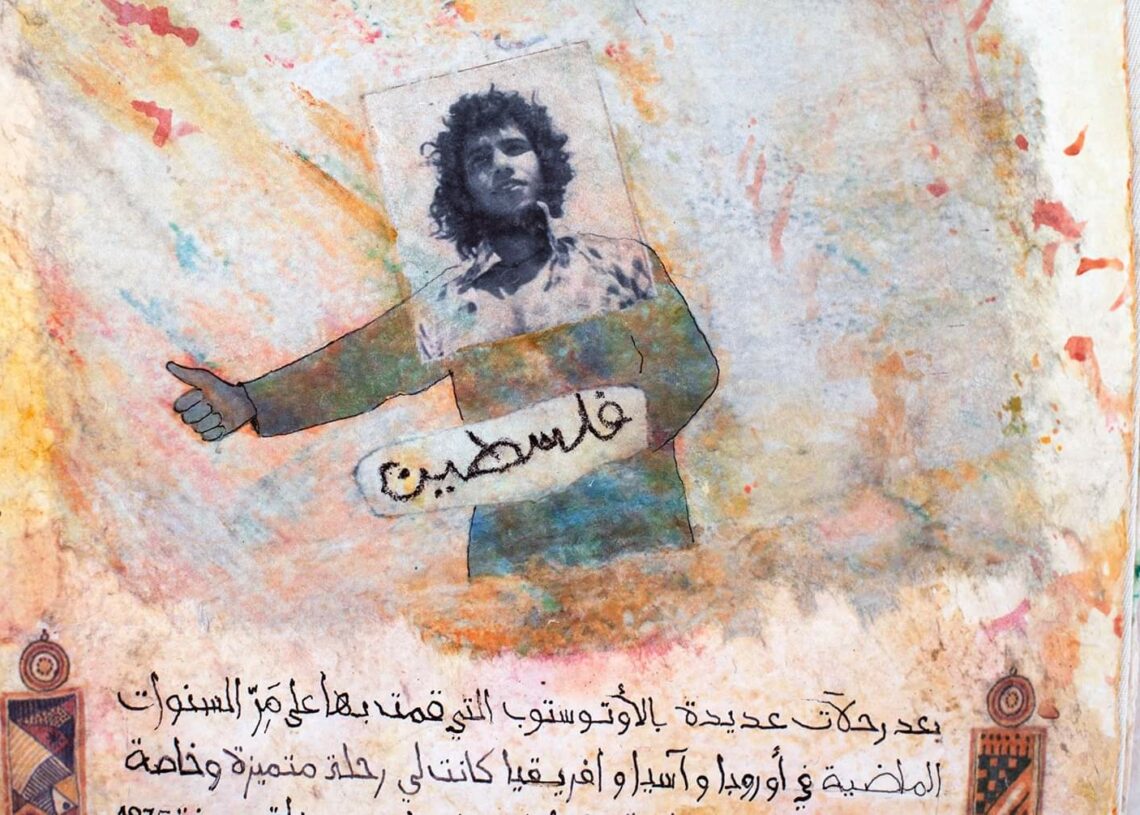 فلسطين
بعد رحلات عديدة بالأوتوستوب التي قمت بها على مَرّ السنوات
الماضية في أوروبا و آسيا و افريقيا كانت لي رحلة متميزة وخاصة
1975